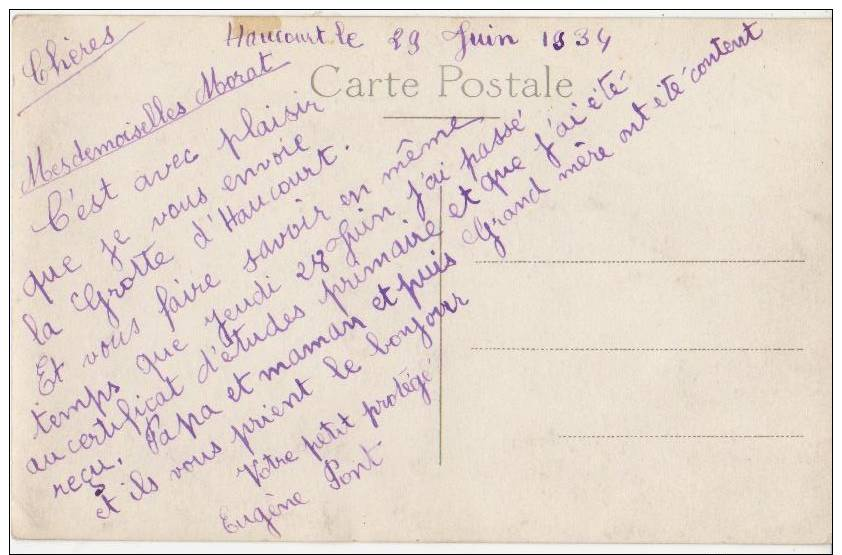 Haucourt le 29 Juin 1934
Carte Postale
Chères
Mesdemoiselles Morat
C'est avec plaisir
que je vous envoie
la Grotte d'Haucourt.
Et vous faire savoir en même
temps que jeudi 28 Juin j'ai passé
au certificat d'études primaire et que j'ai été
reçu. Papa et maman et puis Grand mère ont été content
et ils vous prient le bonjour
Votre petit protégé
Eugène Pont